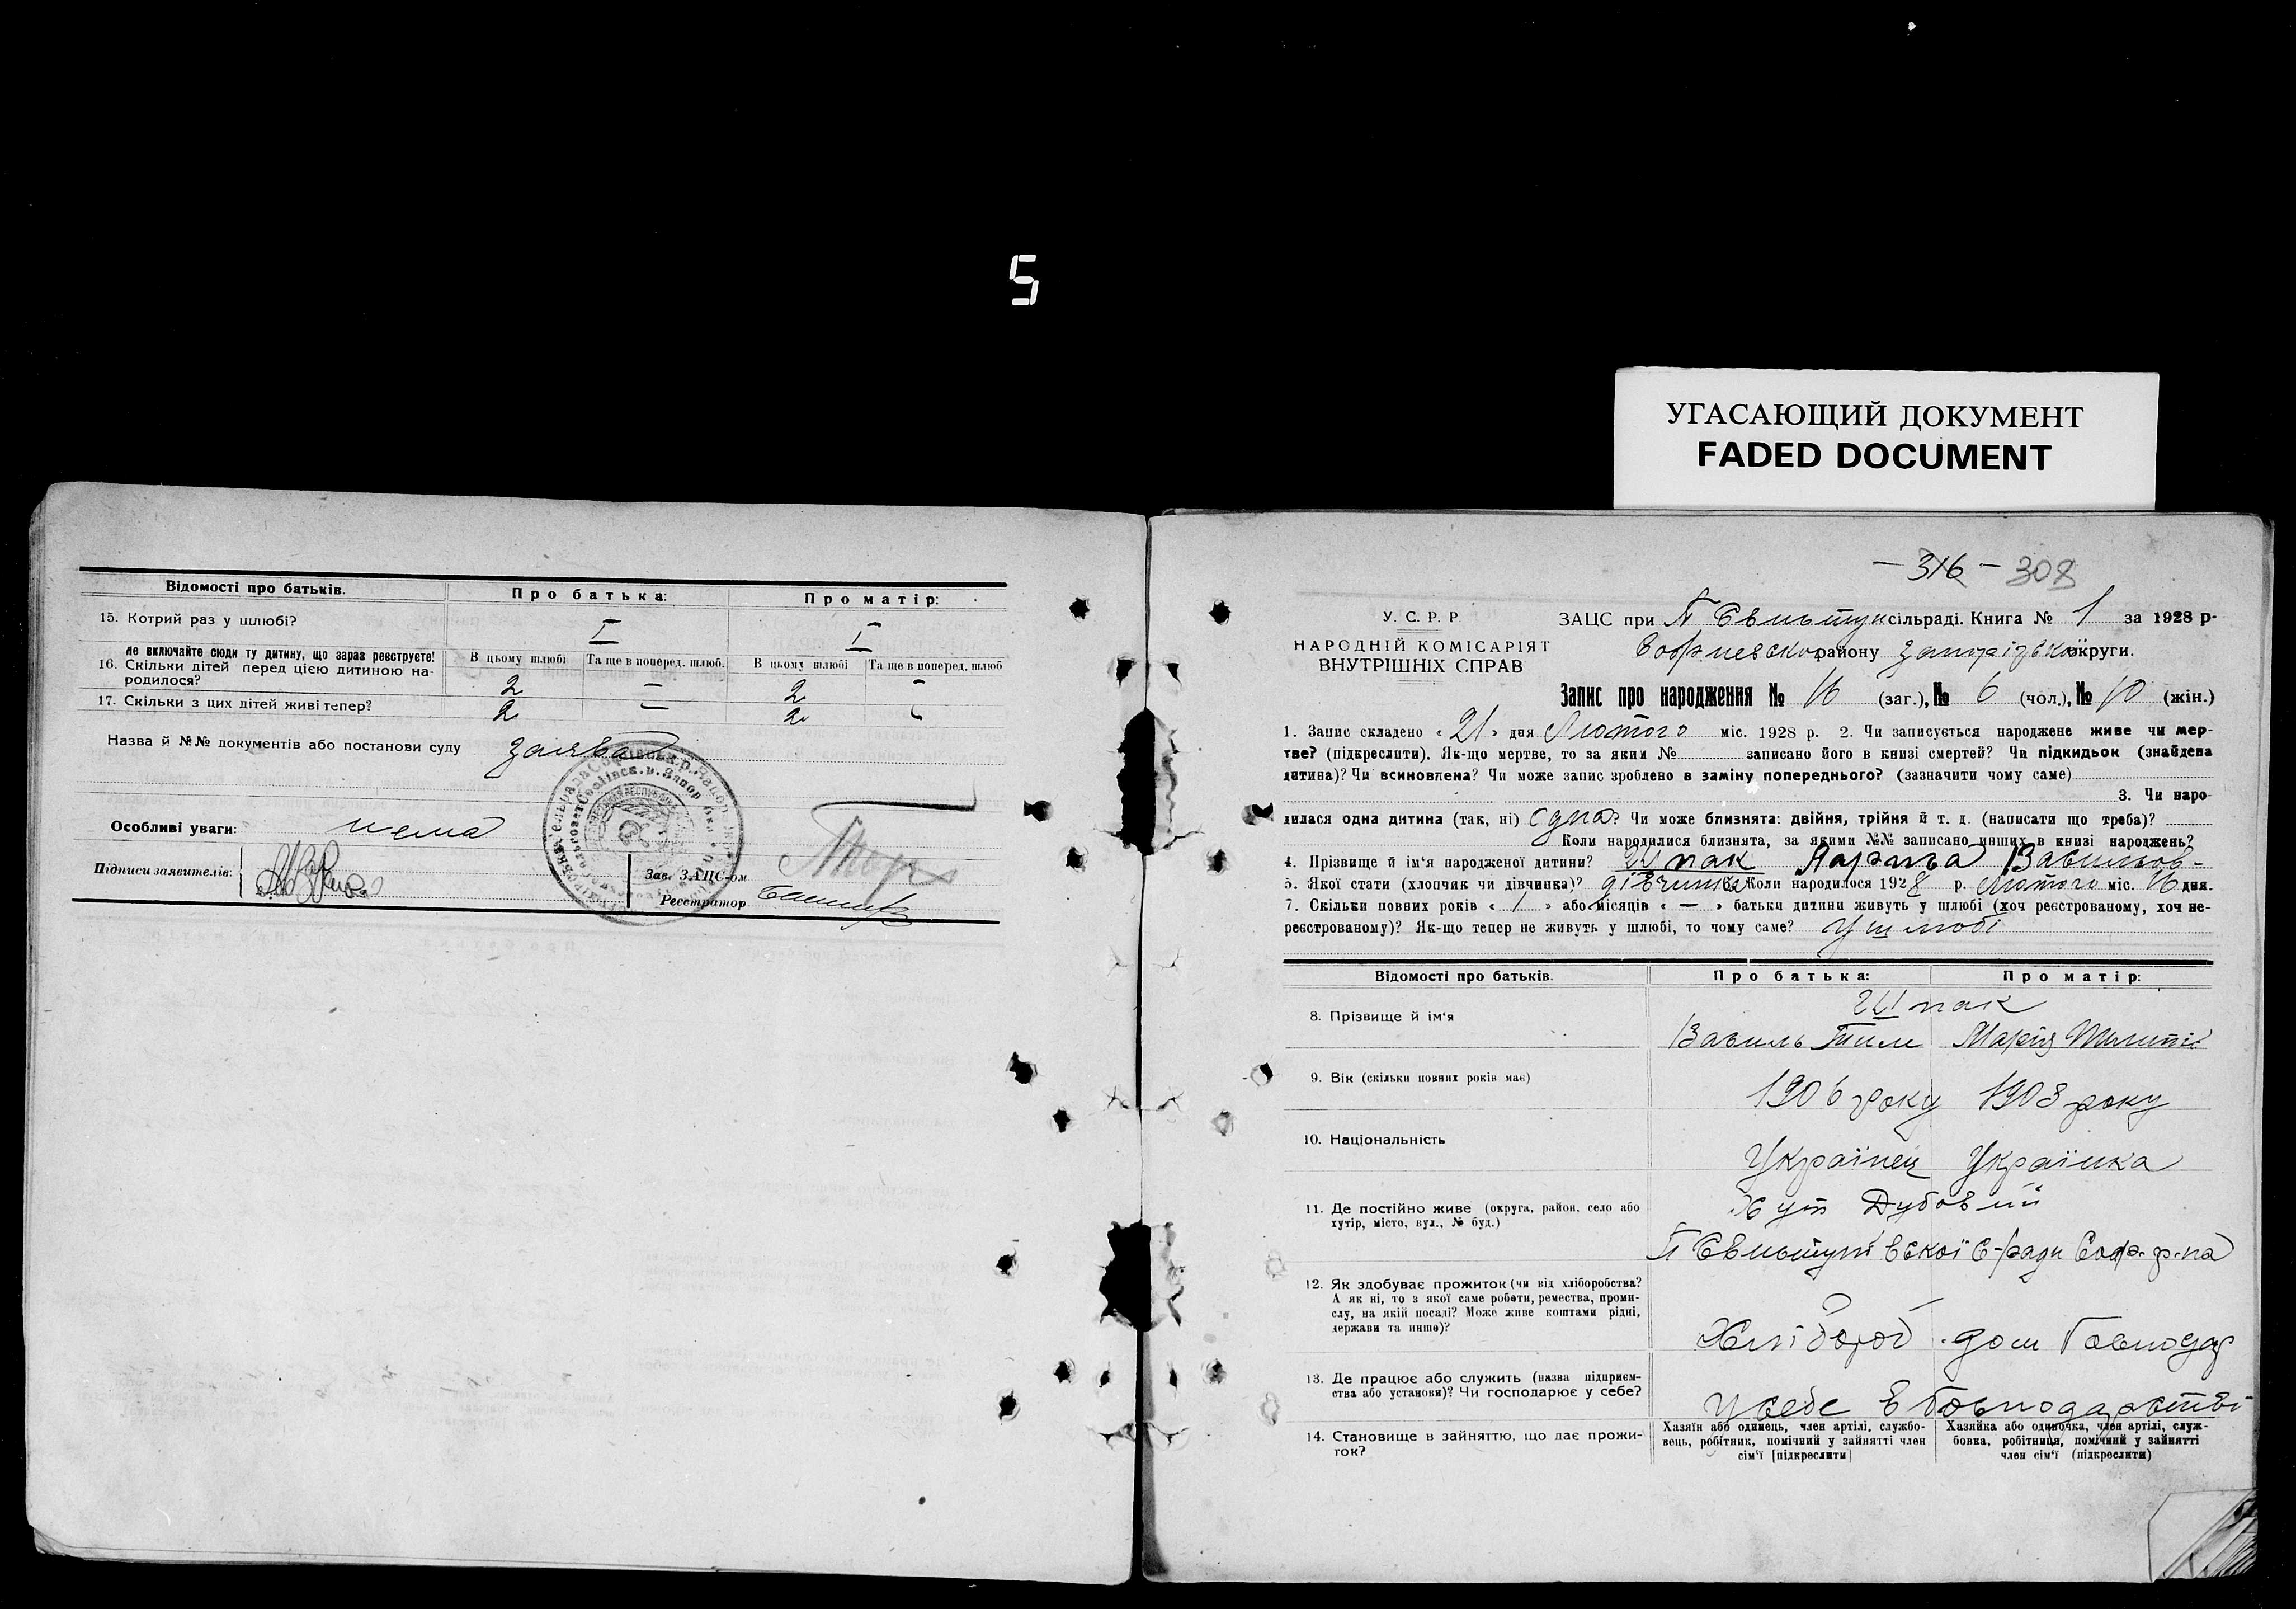 5
УГАСАЮЩИЙ ДОКУМЕНТ
FADED DOCUMENT
Відомості про батьків.
Про батька:
Про матір:
15. Котрий раз у шлюбі?
I
I
не включайте сюди ту дитину, що зараз реєструєте!
16. Скільки дітей перед цією дитиною на-
родилося?
В цьому шлюбі
Та ще в поперед. шлюб.
В цьому шлюбі
Та ще в поперед. шлюб
2 — 2 —
17. Скільки з цих дітей живі тепер?
2 — 2 —
Назва й №№ документів або постанови суду заява
Особливі уваги: нема
Підписи заявителів:
Зав. ЗАЦС-ом
Реєстратор
— 316 — 308
У. С. Р. Р.
НАРОДНІЙ КОМІСАРІЯТ
ВНУТРІШНІХ СПРАВ
ЗАЦС при сільраді. Книга № 1 за 1928 р-
району округи.
Запис про народження № 16 (заг.), № 6 (чол.), № 10 (жін.)
1. Запис складено «21» дня Лютого міс. 1928 р. 2. Чи записується народжене живе чи мер-
тве? (підкреслити). Як-що мертве, то за яким № записано його в книзі смертей? Чи підкидьок (знайдена
дитина)? Чи всиновлена? Чи може запис зроблено в заміну попереднього? (зазначити чому саме)
3. Чи наро-
дилася одна дитина (так, ні) одна? Чи може близнята: двійня, трійня й т. д. (написати що треба)?
Коли народилися близнята, за якими №№ записано инших в книзі народжень?
4. Прізвище й ім'я народженої дитини? Шпак
5. Якої стати (хлопчик чи дівчинка)? дівчинка Коли народилося 1928 р. Лютого міс. 16 дня.
7. Скільки повних років « 1 » або місяців « — » батьки дитини живуть у шлюбі (хоч реєстрованому, хоч не-
реєстрованому)? Як-що тепер не живуть у шлюбі, то чому саме? У шлюбі
Відомості про батьків.
Про батька:
Про матір:
8. Прізвище й ім'я
Шпак
Василь
Марія
9. Вік (скільки повних років має)
1906 року
1908 року
10. Національність
Українец
Українка
11. Де постійно живе (округа, район, село або
хутір, місто, вул., № буд.)
Хут Дубовий
12. Як здобуває прожиток (чи від хліборобства?
А як ні, то з якої саме роботи, ремества, проми-
слу, на якій посаді? Може живе коштами рідні,
держави та инше)?
Хлібороб
дом Господар
13. Де працює або служить (назва підприєм-
ства або установи)? Чи господарює у себе?
У себе в господарстві
14. Становище в зайняттю, що дає прожи-
ток?
Хазяїн або одинець, член артілі, службо-
вець, робітник, помічний у зайнятті член
сім'ї [підкреслити]
Хазяйка або одиночка, член артілі, служ-
бовка, робітниця, помічний у зайнятті
член сім'ї (підкреслити)